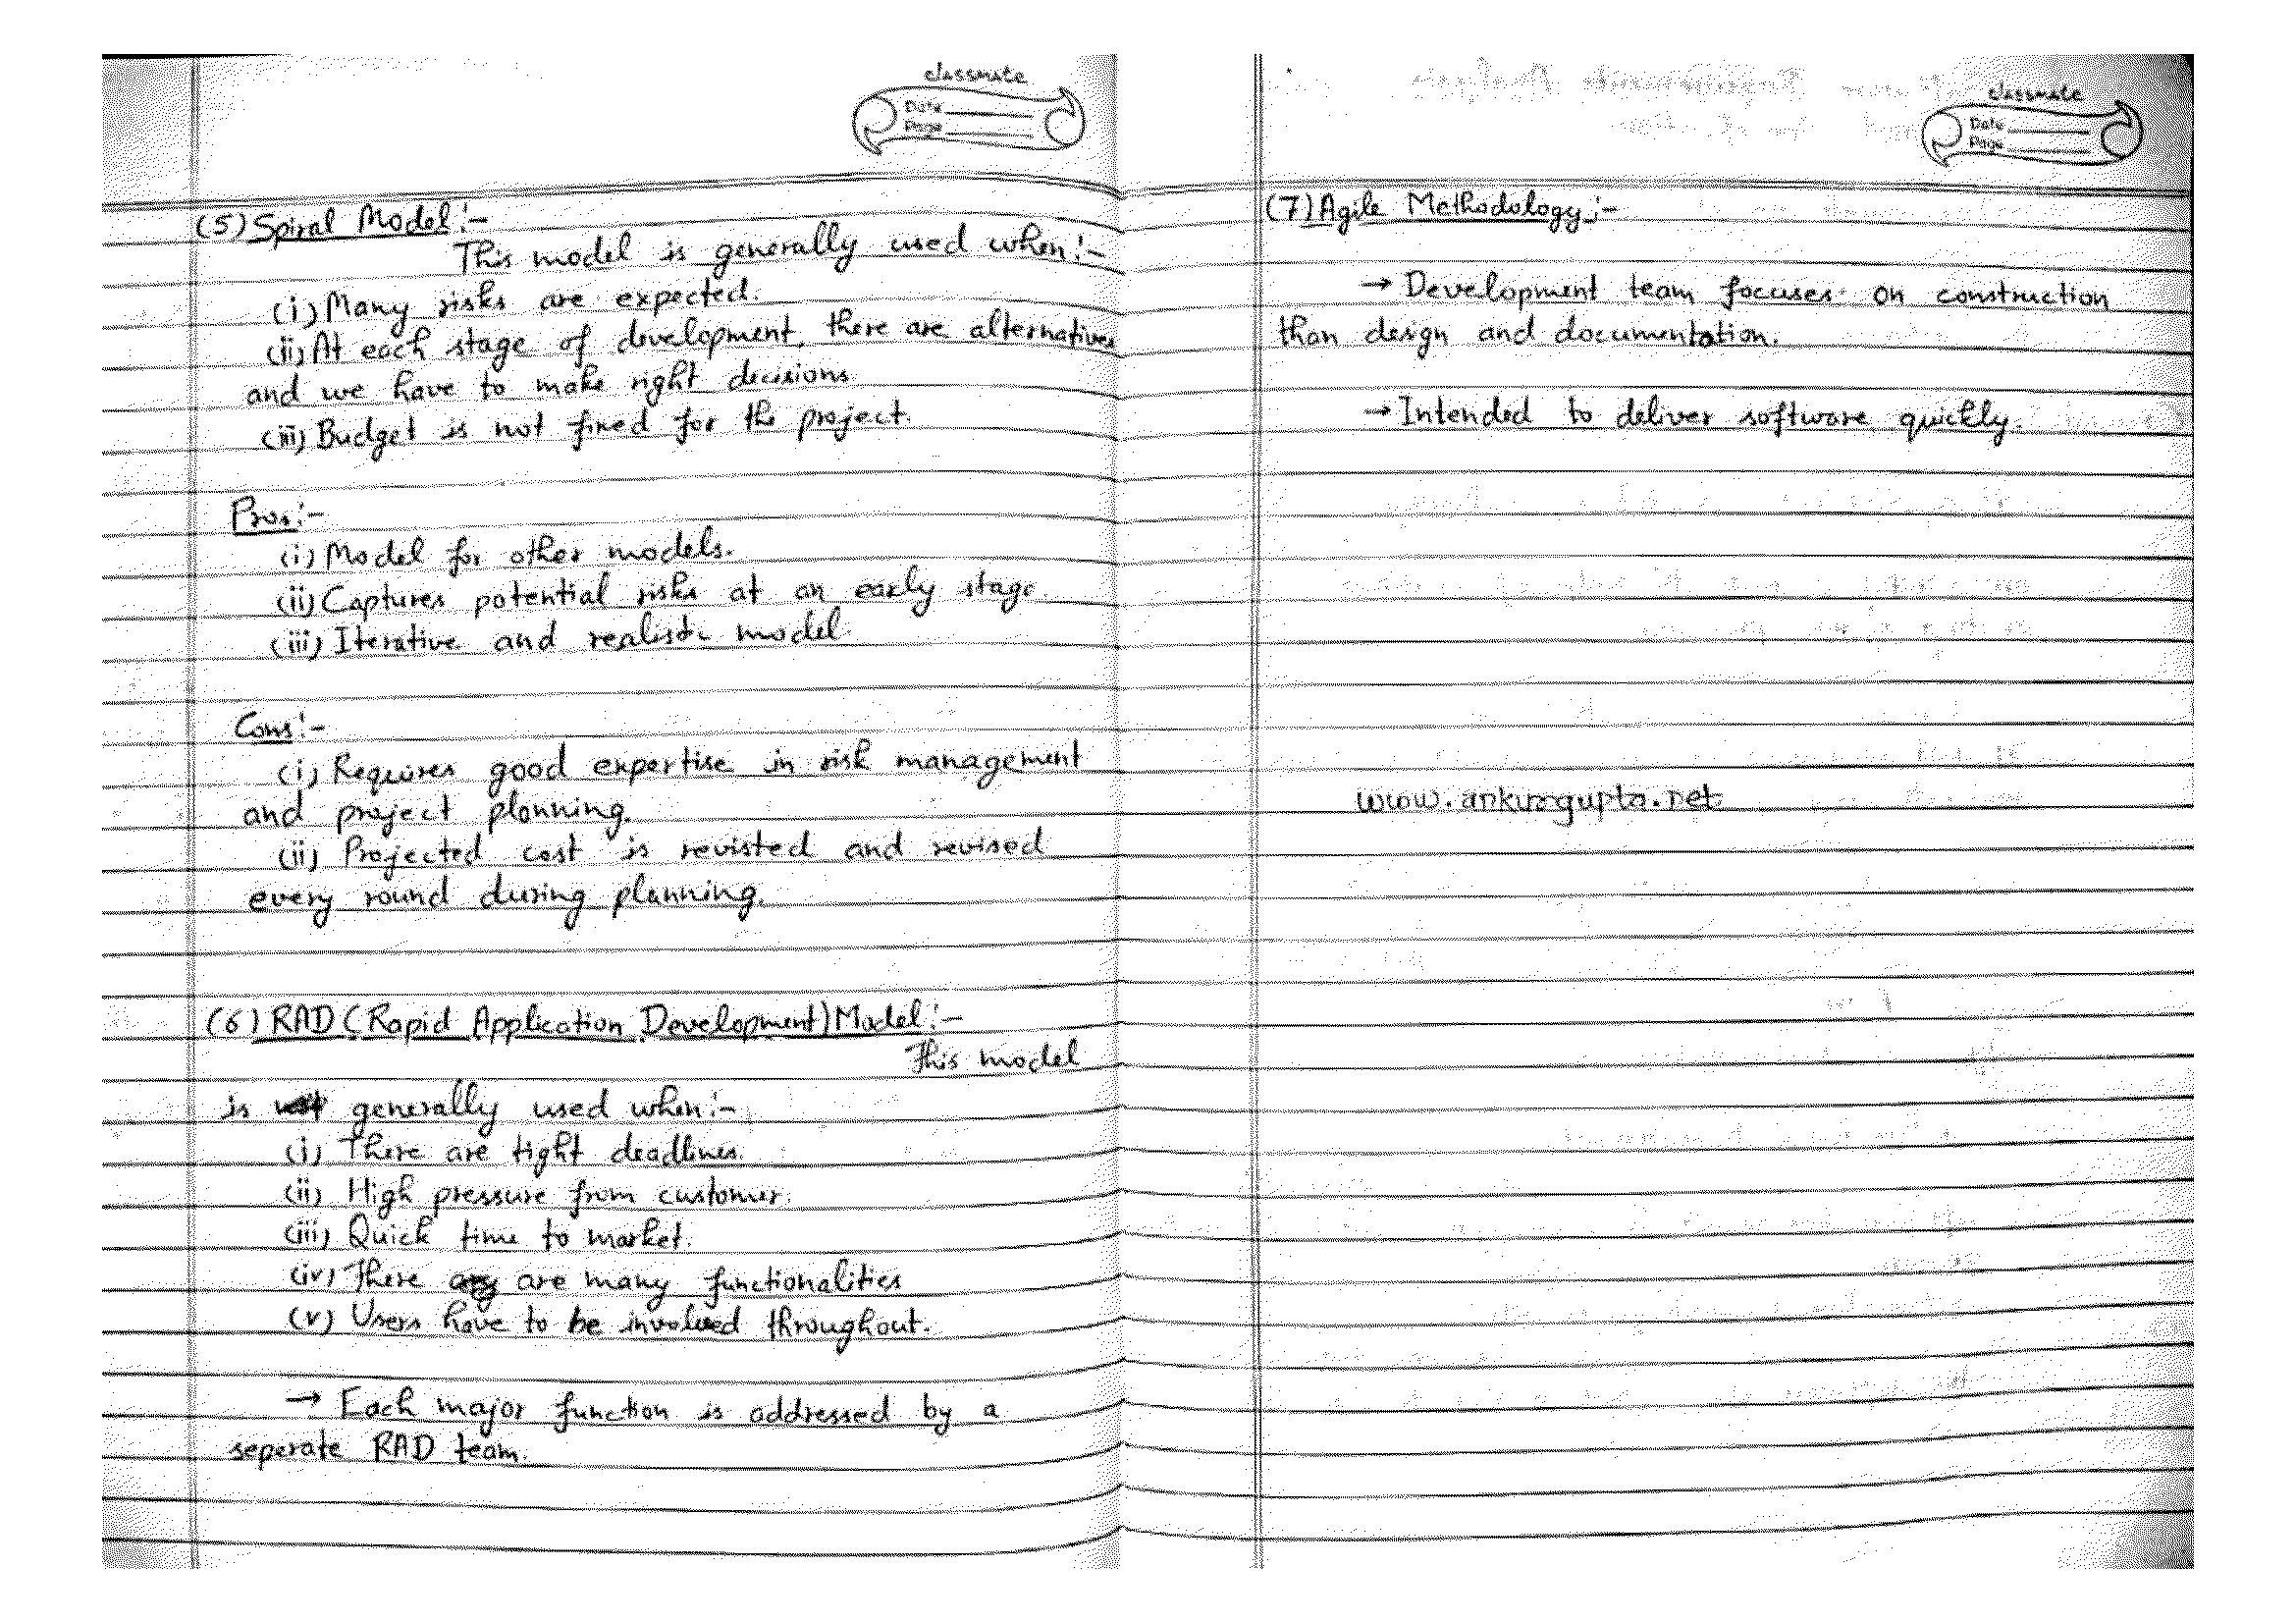 classmate
Date
Page
(5) Spiral Model:-
This model is generally used when:-
(i) Many risks are expected.
(ii) At each stage of development, there are alternatives
and we have to make right decisions.
(iii) Budget is not fixed for the project.
Pros:-
(i) Model for other models.
(ii) Captures potential risks at an early stage.
(iii) Iterative and realistic model.
Cons:-
(i) Requires good expertise in risk management
and project planning.
(ii) Projected cost is revisted and revised
every round during planning.
(6) RAD (Rapid Application Development) Model:-
This model
is generally used when:-
(i) There are tight deadlines.
(ii) High pressure from customer.
(iii) Quick time to market.
(iv) There are many functionalities
(v) Users have to be involved throughout.
→ Each major function is addressed by a
seperate RAD team.
classmate
Date
Page
(7) Agile Methodology:-
→ Development team focuses on construction
than design and documentation.
→ Intended to deliver software quickly.
www.ankurgupta.net